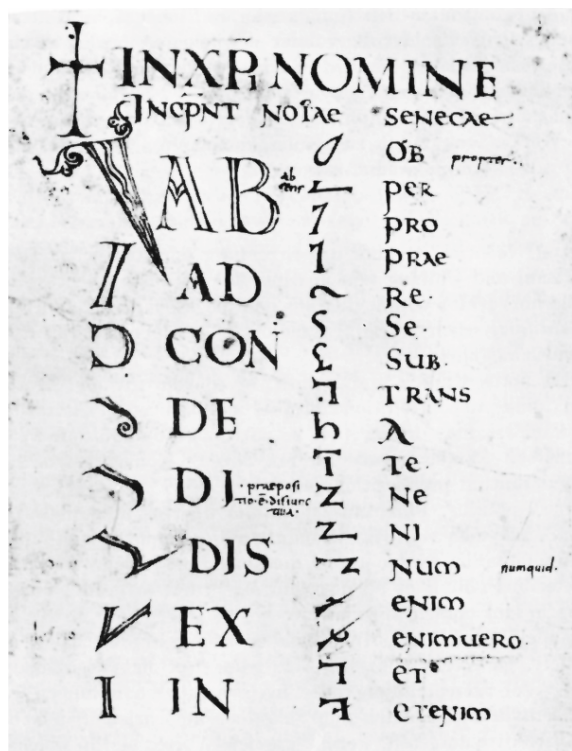 INXP̅I NOMINE
INCIP̅NT NOTAE SENECAE
AB
AD
CON
DE
DI · praeposi
tio·ē·disiunc
tiua·
DIS
EX
IN
OB propter
per
PRO
PRAE
RE·
Se
SUB·
TRANS
A
Te
Ne
NI
NUM numquid·
eNIm
eNIMUERO·
eT
eTeNIm